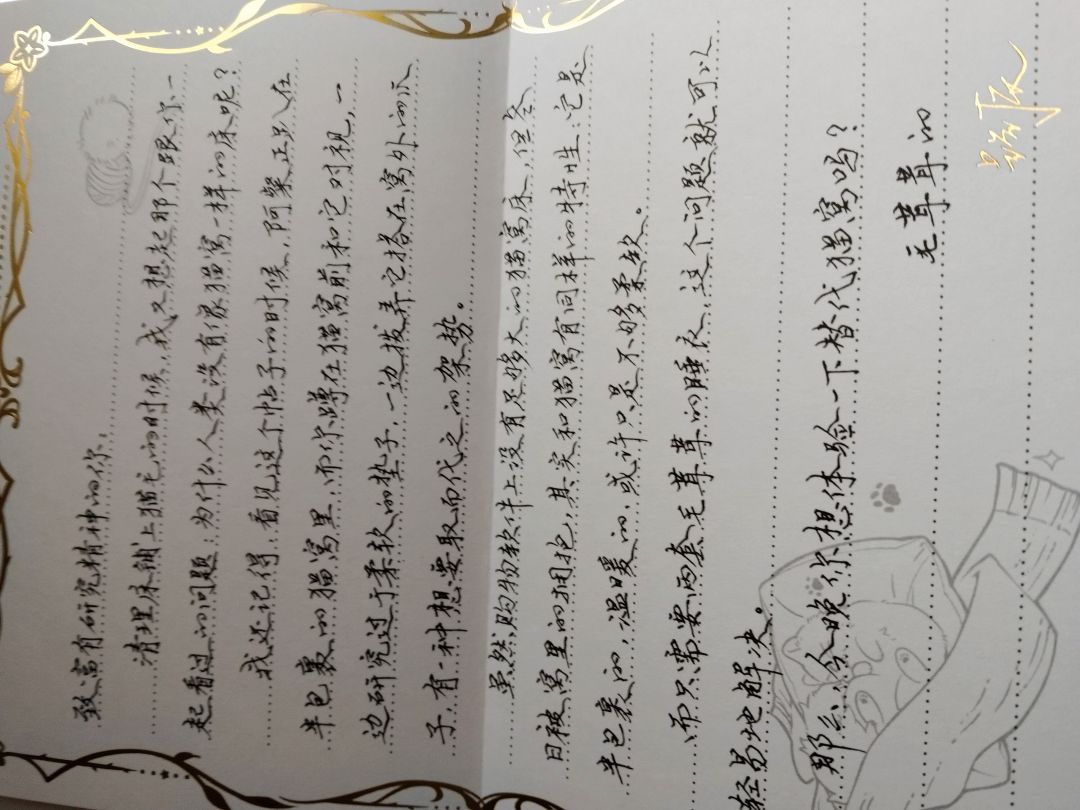 致富有研究精神的你，
清理床铺上猫毛的时候，我又想起那个跟你一
起看过的问题：为什么人类没有像猫窝一样的床呢？
我还记得，看见这个帖子的时候，阿柴正趴在
半包裹的猫窝里，而你蹲在猫窝前和它对视，一
边研究过于柔软的垫子，一边拨弄它搭在窝外的爪
子，有一种想要取而代之的架势。
虽然购物软件上没有足够大的猫窝床，但冬
日被窝里的拥抱，其实和猫窝有同样的特性：它是
半包裹的，温暖的，或许只是不够柔软。
而只需要两套毛茸茸的睡衣，这个问题就可以
轻易地解决。
那么，今晚你想体验一下替代猫窝吗？
毛茸茸的